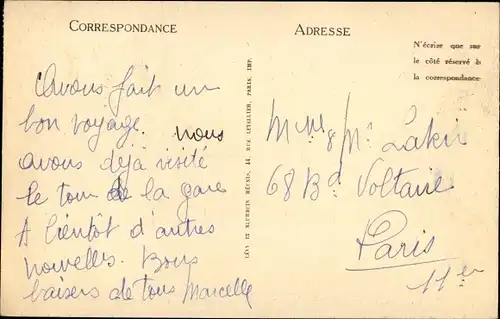 CORRESPONDANCE
ADRESSE
N'écrire que sur
le côté réservé à
la correspondance
LÉVY ET NEURDEIN RÉUNIS, 44, RUE LETELLIER, PARIS, IMP.
Avons fait un
bon voyage. Nous
avons déjà visité
le tour de la gare
A bientôt d'autres
nouvelles. Bons
baisers de tous Marcelle
Mme & Mr
68 Bd Voltaire
Paris
11er